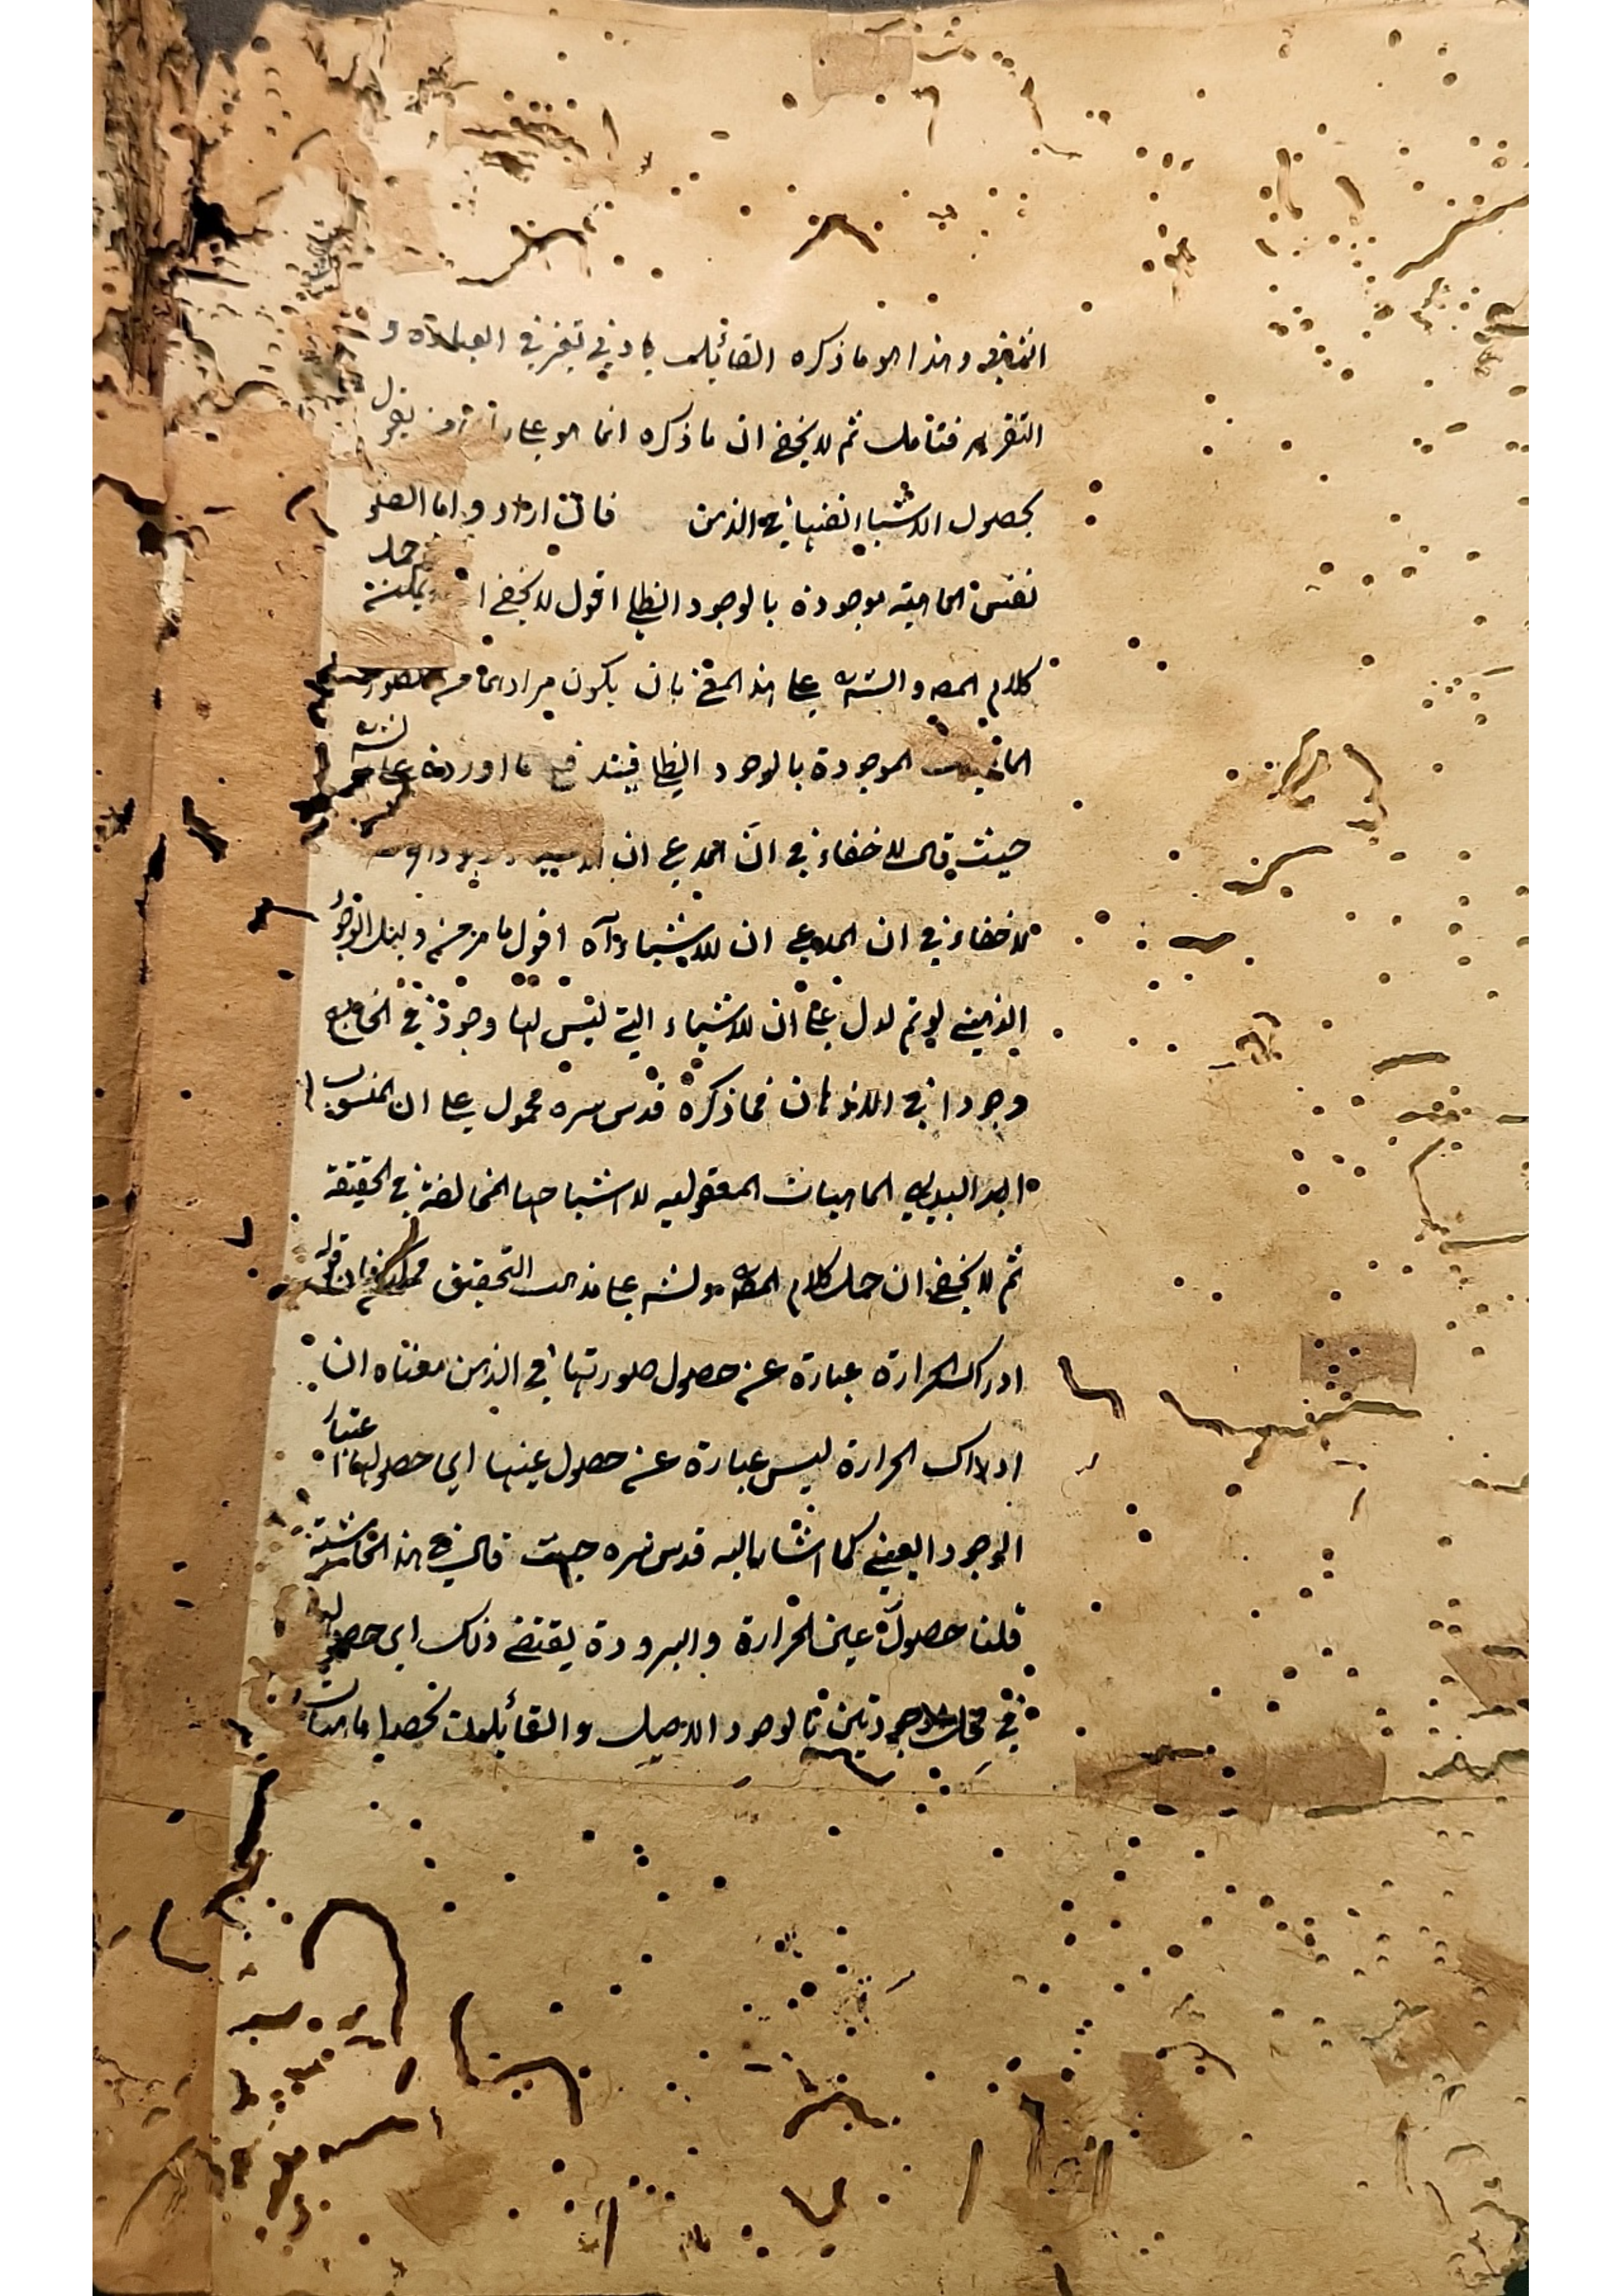 وهذا هو ما ذكره القائل بادني تغير في العبارة و
التقرير فتامل ثم لا يخفى ان ما ذكره انما هو على
بحصول الاشياء انفسها في الذهن فان اراد واما الصو
نفس الماهية موجودة بالوجود الظلي اقول لا يخفى ا يمكنه حمل
كلام المصه والشه على هذا المعنى بان يكون مرادهما من الصورة
الموجودة بالوجود الظلي فيندفع ما اورده على الشه
حيث قال لا خفاء في ان المدعى ان
لا خفاء في ان المدعى ان للاشياء آه اقول ما مر من دليل الوجود
الذهني لو تم لدل على ان للاشياء التي ليس لها وجود في الخارج
وجودا في الاذهان فما ذكره قدس سره محمول على ان المنسوب ا
الماهيات المعقولية لا اشباحها المخالفة في الحقيقة
ثم لا يخفى ان حمل كلام المصه والشه على ذلك التحقيق ممكن فان قوله
ادراك الحرارة عبارة عن حصول صورتها في الذهن معناه ان
ادراك الحرارة ليس عبارة عن حصول عينها اي حصولها باعتبار
الوجود العيني كما اشار اليه قدس سره حيث قال في هذا الحاشية
قلنا حصول عين الحرارة والبرودة يقتضي ذلك اي حصولها
في محل موجودتين بالوجود الاصيل والقائلون بحصول ماهيات